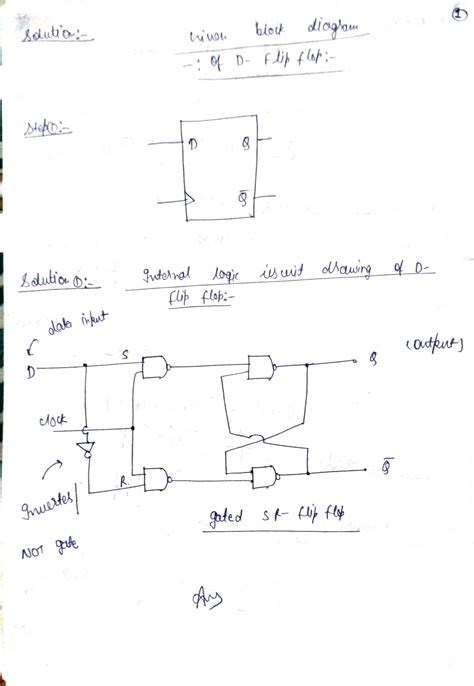 1
Solution:-
Given block diagram
-: of D- Flip flop:-
Step①:-
D
Q
Q̅
Solution ①:-
Internal logic circuit drawing of D-
flip flop:-
data input
D
S
Q
(output)
clock
R
Q̅
Inverter/
NOT gate
gated SR- flip flop
Ans